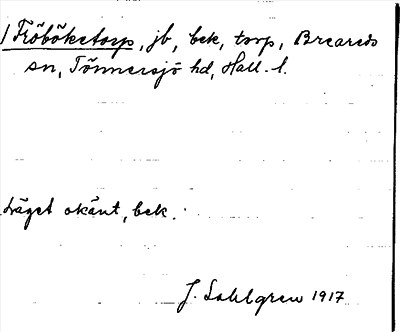 /Fröböketorp, jb, bek, torp, Breareds
sn, Tönnersjö hd, Hall. l.
Läget okänt, bek.
J. Sahlgren 1917